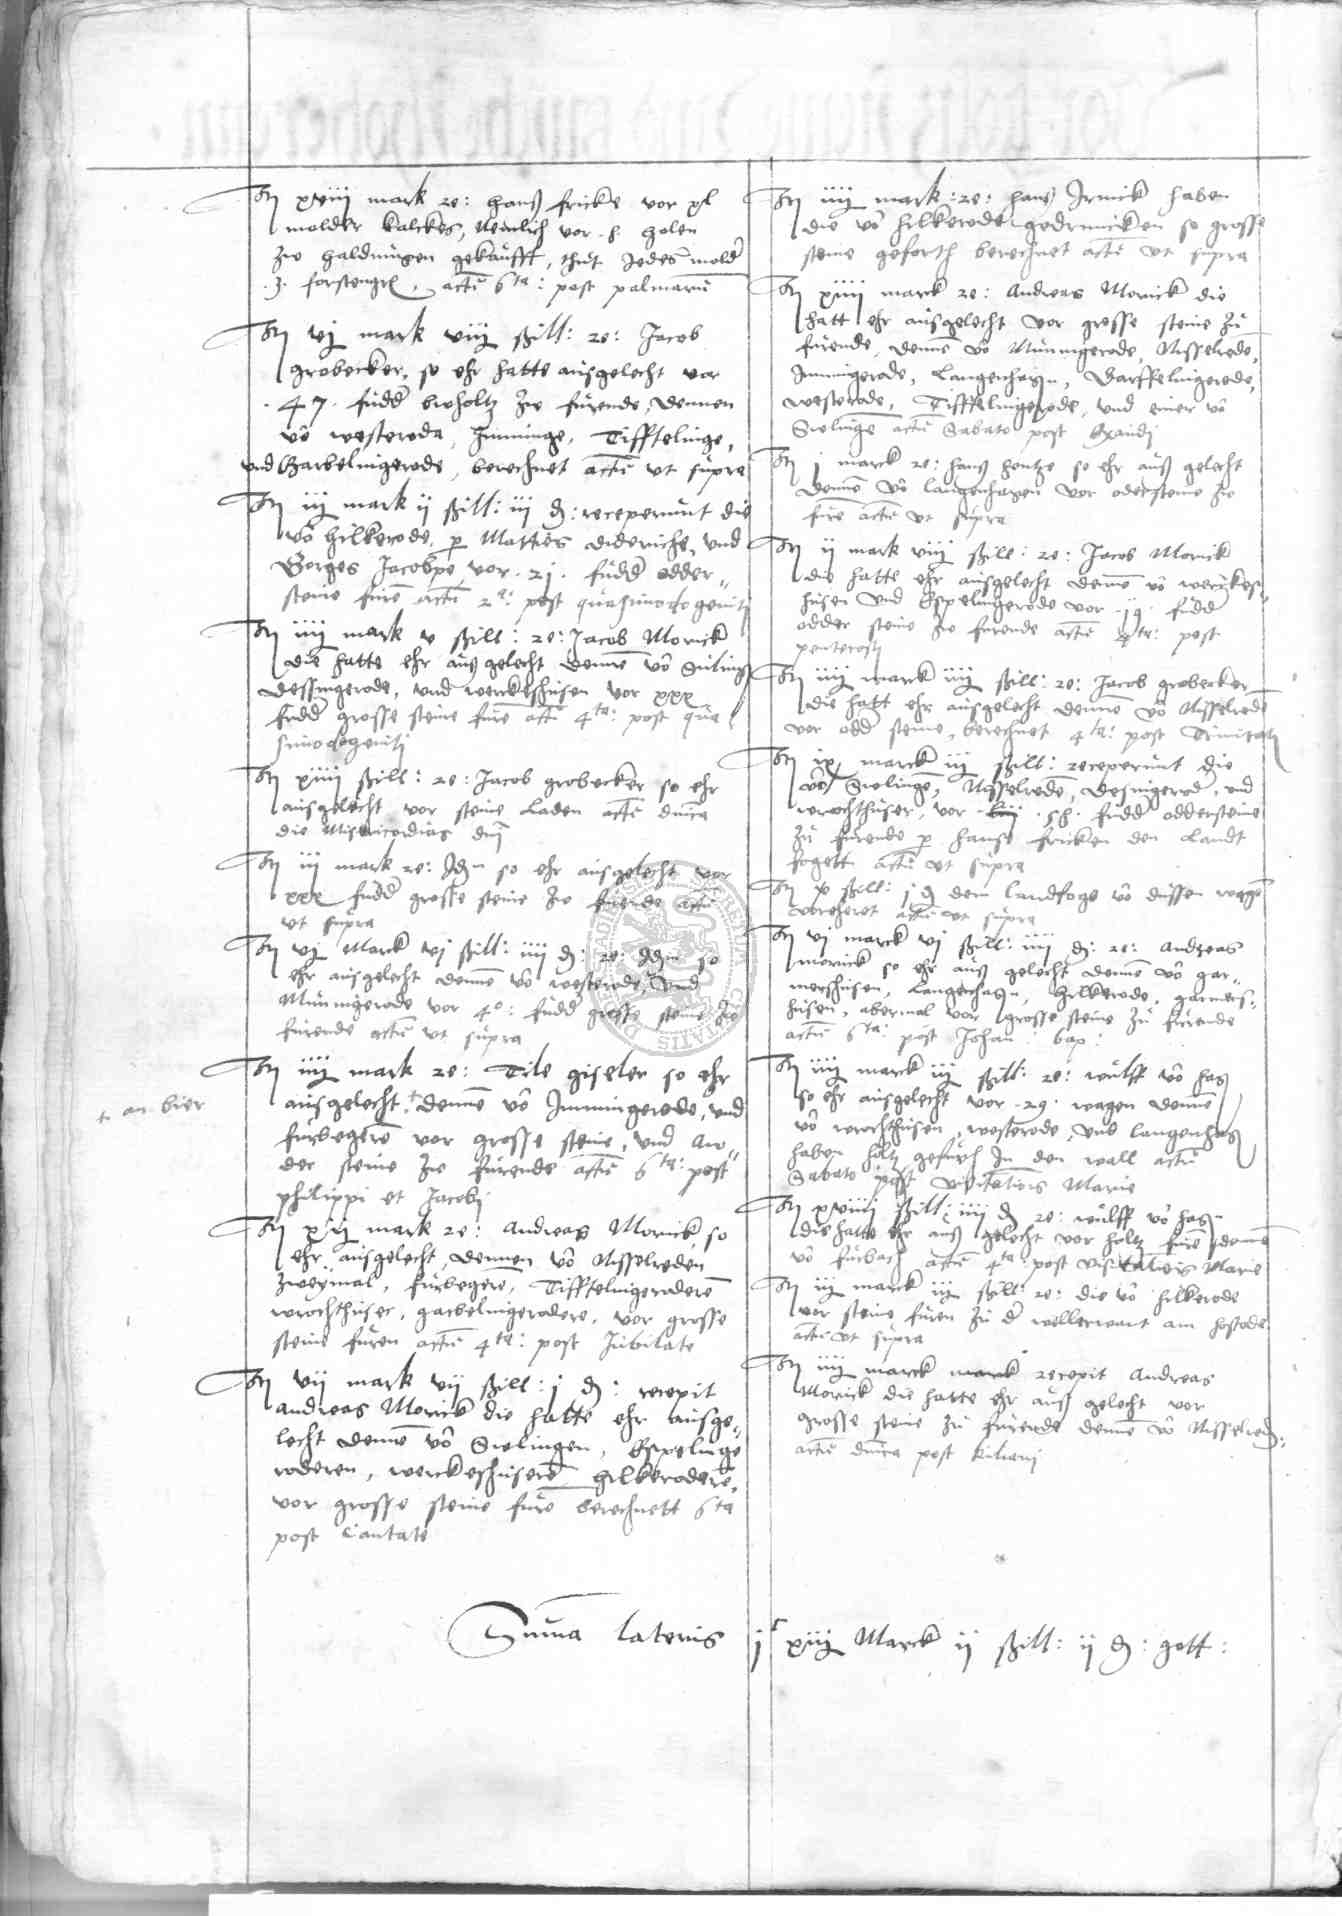 It xviii mark re: hans fricke vor xl
molder kalckes, Nemlich vor h holen
zw haldungen gekaufft, thut Jedes mold
.3. forstengr, actu 6ta: post palmaru
It vj mark viij ßill: re: Jacob
grobecker, so ehr hatte ausgelecht vor
.47. fudd buholtz zw furende, dennen
vo westeroda, Imminge, Tifftelinge,
und Garbelingerode, berechnet actu ut supra
It iij mark ij ßill: iij d: receperunt die
vo hilkerode, p Mattes diderichs, und
Borges Jacobs, vor .21. fudd odder-
steine fure actu 2a: post quasimodogeniti
It iiij mark v ßill: re: Jacob Morick
die hatte ehr ausgelecht denne vo Suling
dessingerode, und werckeshusen vor xxx
fudd grosse steine fure actu 4ta: post qua
simodogeniti
It xiiij ßill: re: Jacob grobecker so ehr
ausgelecht vor steine laden actu dnica
die Misericordias dni
It iij mark re: Idem so ehr ausgelecht vor
xxx fudd grosse steine zw furende actu
ut supra
It vj Marck vj ßill: iiij d: re: Idem so
ehr ausgelecht denne vo westerode, und
Munnigerode vor 40: fudd grosse steine zw
furende actu ut supra
It iiij mark re: Tile giseler so ehr
ausgelecht, + denne vo Immingerode, und
+ an bier
furbegere vor grosse steine, und aw-
der steine zw furende actu 6ta: post
philippi et Jacobj
It xvj mark re: Andreas Morick, so
ehr ausgelecht, dennen vo Nisselreden
zweymal, furbegere, Tifftelingerodere
wrochthuser, garbelingerodere, vor grosse
steine furen actu 4ta: post Jubilate
It vij mark vij ßill: j d: recepit
Andreas Morick die hatte ehr ausge-
lecht denne vo Swlingen, Espelinge
roderen, werckeshusere hilkerodere,
vor grosse steine fure berechnett 6ta
post Cantate
It iiij mark: re: hans Irmick haben
die vo hilkerode gedruncken so grosse
steine geforth berechnet actu ut supra
It xiiij marck re: Andreas Morick die
hatt ehr ausgelecht vor grosse steine zu
furende, denne vo Munnigerode, Nisselrode,
Immigerode, Langenhagen, Garffelingerode,
westerode, Tifftelingerode, und einer vo
Swlinge actu Sabato post Exaudj
It j marck re: hans hentze so ehr aus gelecht
denne vo langenhagen vor odersteine zw
fure actu ut supra
It ij mark viij ßill: re: Jacob Morick
die hatte ehr ausgelecht denne vo werckes-
husen und Espelingerode vor .19. fudd
odder steine zw furende actu 4ta: post
pentecost
It iiij marck iiij ßill: re: Jacob grobecker
die hatt ehr ausgelecht denne vo Nisselrode
vor odd steine, berechnet 4ta: post Trinitat
It ix marck iij ßill: receperunt die
vo Swlinge, Nisselrode, desingerod, und
wrochthuser, vor .58. fudd oddersteine
zu furende p hanse fricken den Landt
fogett actu ut supra
It x ßill: j d dem landfoge vo dussen wagen
vorzeret actu ut supra
It vj marck vj ßill: iiij d: re: Andreas
morick so ehr aus gelecht denne vo gar-
mershusen, Langenhagen, hilkerode, garmers-
husen, abermal vor grosse steine zu furende
actu 6ta: post Johan: bap:
It iiij marck iij ßill: re: wulff vo hag
so ehr ausgelecht vor .29. wagen denne
vo wrochthusen, westerode, und langenhag
haben holtz gefurth In den wall actu
Sabato post visitationis Marie
It xviiij ßill: iiij d re: wulff vo hagen
die hatte ehr aus gelecht vor holtz fure denne
vo furbach actu 4ta: post visitationis Marie
It iij marck iij ßill: re: die vo hilkerode
vor steine furen zu d wellerwant am hestode
actu ut supra
It iiij marck recepit Andreas
Morick die hatte ehr aus gelecht vor
grosse steine zu furende denne vo Nisselrod:
actu dnica post Kilianj
Suma lateris jc xiij Marck ij ßill: ij d: gott: